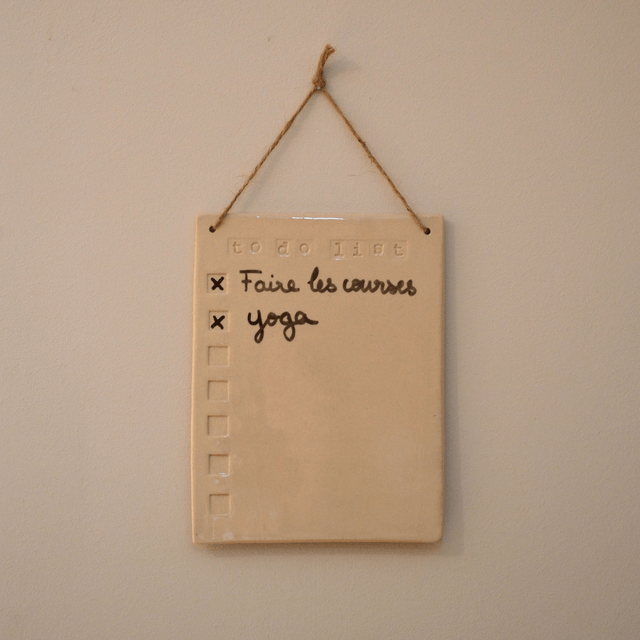 to do list
Faire les courses
yoga